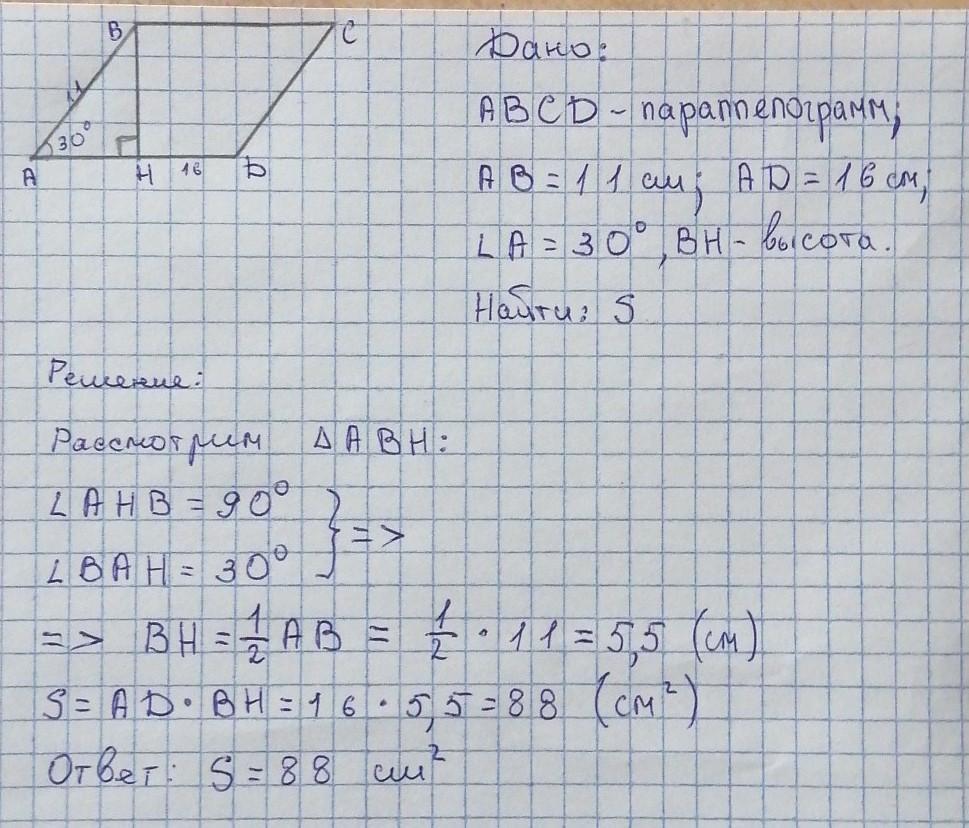 B C
11
30°
A H 16 D
Дано:
ABCD - параллелограмм;
AB = 11 см; AD = 16 см;
∠A = 30°, BH - высота.
Найти: S
Решение:
Рассмотрим ΔABH:
∠AHB = 90°
∠BAH = 30° } =>
=> BH = 1/2 AB = 1/2 · 11 = 5,5 (см)
S = AD · BH = 16 · 5,5 = 88 (см²)
Ответ: S = 88 см²